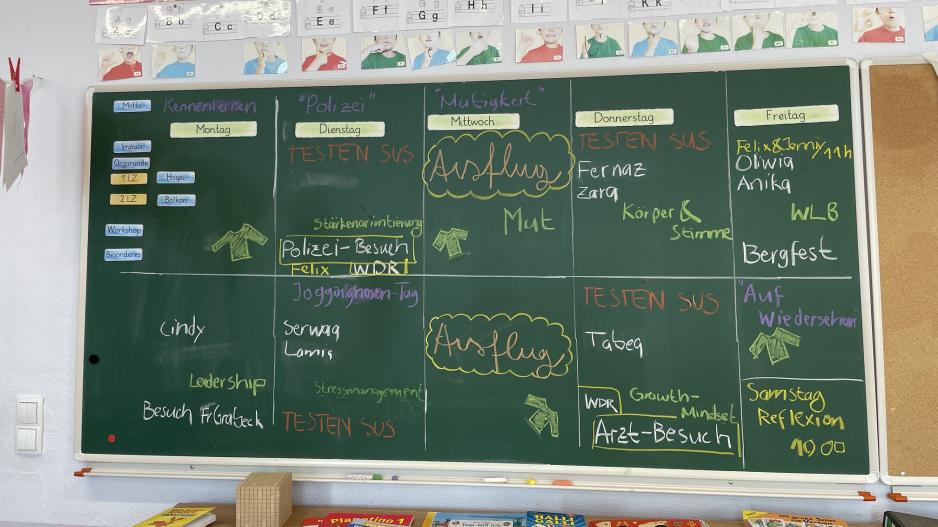 Ee
Ff
Gg
Hh
Bb
Cc
Kk
Motto
Kennenlernen
"Polizei"
"Mutigkeit"
Montag
Dienstag
Mittwoch
Donnerstag
Freitag
Impuls
Orgarunde
1 LZ
Hospi
2 LZ
Balkon
Workshop
Besonderes
TESTEN SUS
Stärkenorientierung
Polizei-Besuch
Felix
WDR
Ausflug
Mut
TESTEN SUS
Fernaz
Zara
Körper &
Stimme
Felix & Jenny
11h
Oliwia
Anika
WLB
Bergfest
Cindy
Leadership
Besuch
Fr
Jogginghosen-Tag
Serwaa
Lamia
Stressmanagement
TESTEN SUS
Ausflug
TESTEN SUS
Tabea
WDR
Growth-
Mindset
Arzt-Besuch
"Auf
Wiedersehen
Samstag
Reflexion
19 00
Planetino 1
HALLI
GALLI